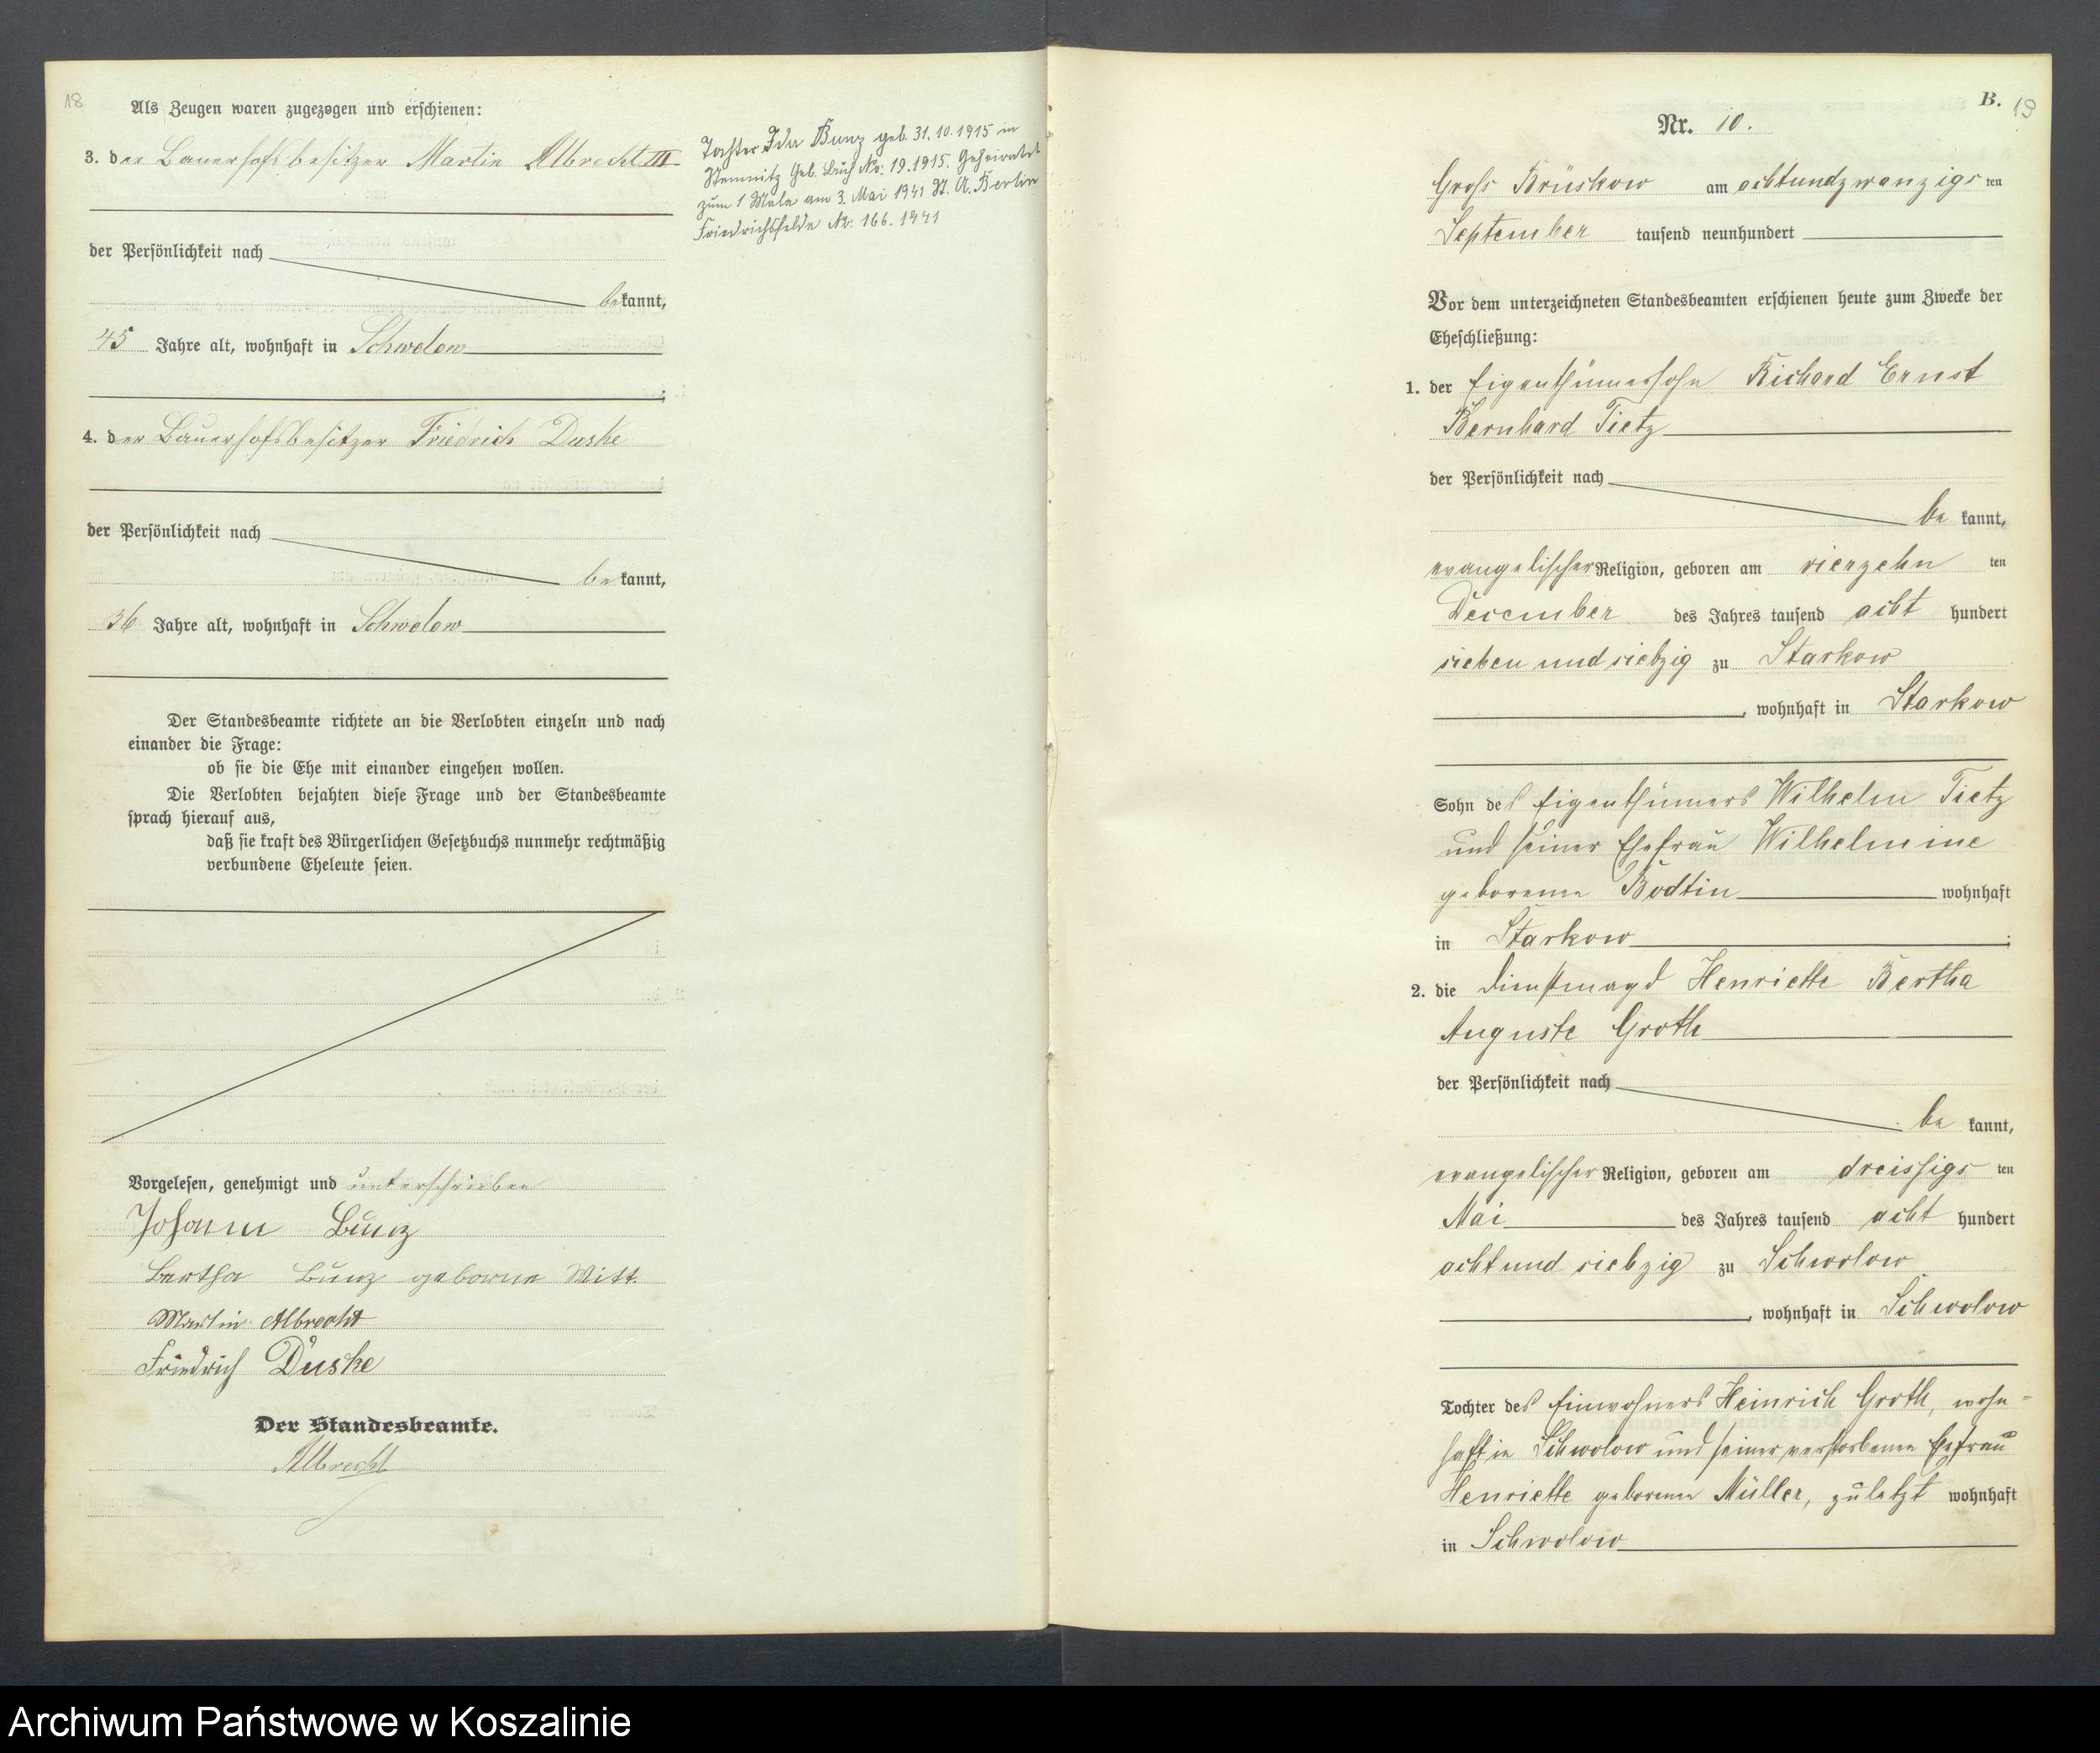 18
Als Zeugen waren zugezogen und erschienen:
3. der Bauerhofsbesitzer Martin Albrecht III
der Persönlichkeit nach
bekannt,
45 Jahre alt, wohnhaft in Schwolow
4. der Bauerhofsbesitzer Friedrich Duske
der Persönlichkeit nach
bekannt,
36 Jahre alt, wohnhaft in Schwolow
Der Standesbeamte richtete an die Verlobten einzeln und nach
einander die Frage:
ob sie die Ehe mit einander eingehen wollen.
Die Verlobten bejahten diese Frage und der Standesbeamte
sprach hierauf aus,
daß sie kraft des Bürgerlichen Gesetzbuchs nunmehr rechtmäßig
verbundene Eheleute seien.
Vorgelesen, genehmigt und unterschrieben
Johann Bunz
Bertha Bunz geborne Witt.
Martin Albrecht
Friedrich Duske
Der Standesbeamte.
Albrecht
Tochter Ida Bunz geb. 31.10.1915 in
Stemnitz Geb. Buch No: 19.1915. Geheiratet
zum 1 Male am 3. Mai 1941 St. A. Berlin
Friedrichsfelde No: 166. 1941
B. 19
Nr. 10.
Gross Brüskow am achtundzwanzigsten
September tausend neunhundert
Vor dem unterzeichneten Standesbeamten erschienen heute zum Zwecke der
Eheschließung:
1. der Eigenthümersohn Richard Ernst
Bernhard Tietz
der Persönlichkeit nach
be kannt,
evangelischer Religion, geboren am vierzehn ten
December des Jahres tausend acht hundert
sieben und siebzig zu Starkow
, wohnhaft in Starkow
Sohn des Eigenthümers Wilhelm Tietz
und seiner Ehefrau Wilhelmine
geborenen Bodtin wohnhaft
in Starkow ;
2. die Dienstmagd Henriette Bertha
Auguste Groth
der Persönlichkeit nach
be kannt,
evangelischer Religion, geboren am dreissigs ten
Mai des Jahres tausend acht hundert
acht und siebzig zu Schwolow
, wohnhaft in Schwolow
Tochter des Einwohners Heinrich Groth, wohn-
haft in Schwolow und seiner verstorbenen Ehefrau
Henriette geborenen Müller, zuletzt wohnhaft
in Schwolow
Archiwum Państwowe w Koszalinie